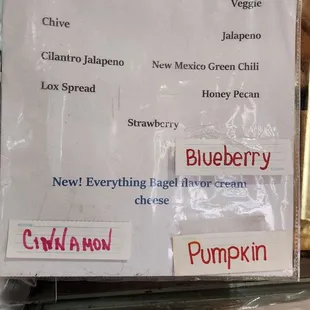 Veggie
Chive
Jalapeno
Cilantro Jalapeno
New Mexico Green Chili
Lox Spread
Honey Pecan
Strawberry
Blueberry
New! Everything Bagel flavor cream
cheese
Cinnamon
Pumpkin